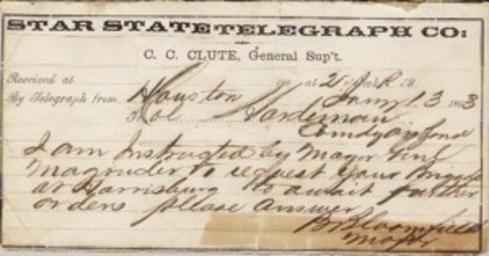 STAR STATE TELEGRAPH CO:
C. C. CLUTE, General Sup't.
Received at 186 at 2 o'clk P. M.
By Telegraph from Houston Jany 13 1863
To Col Hardeman
Comdg
I am Instructed by Major Genl
Magruder to request your
at Harrisburg to await further
orders please answer
B Bloomfield
Major